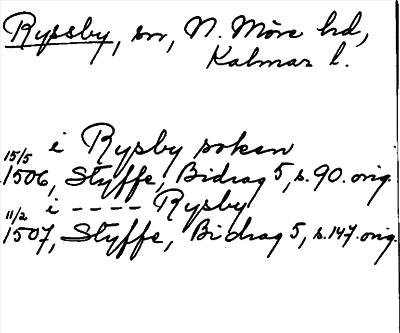 Ryssby, sn, N. Möre hd,
Kalmar l.
i Rysby soken
15/5 1506, Styffe, Bidrag 5, s. 90. orig.
i ---- Rysby
11/2 1507, Styffe, Bidrag 5, s. 147. orig.